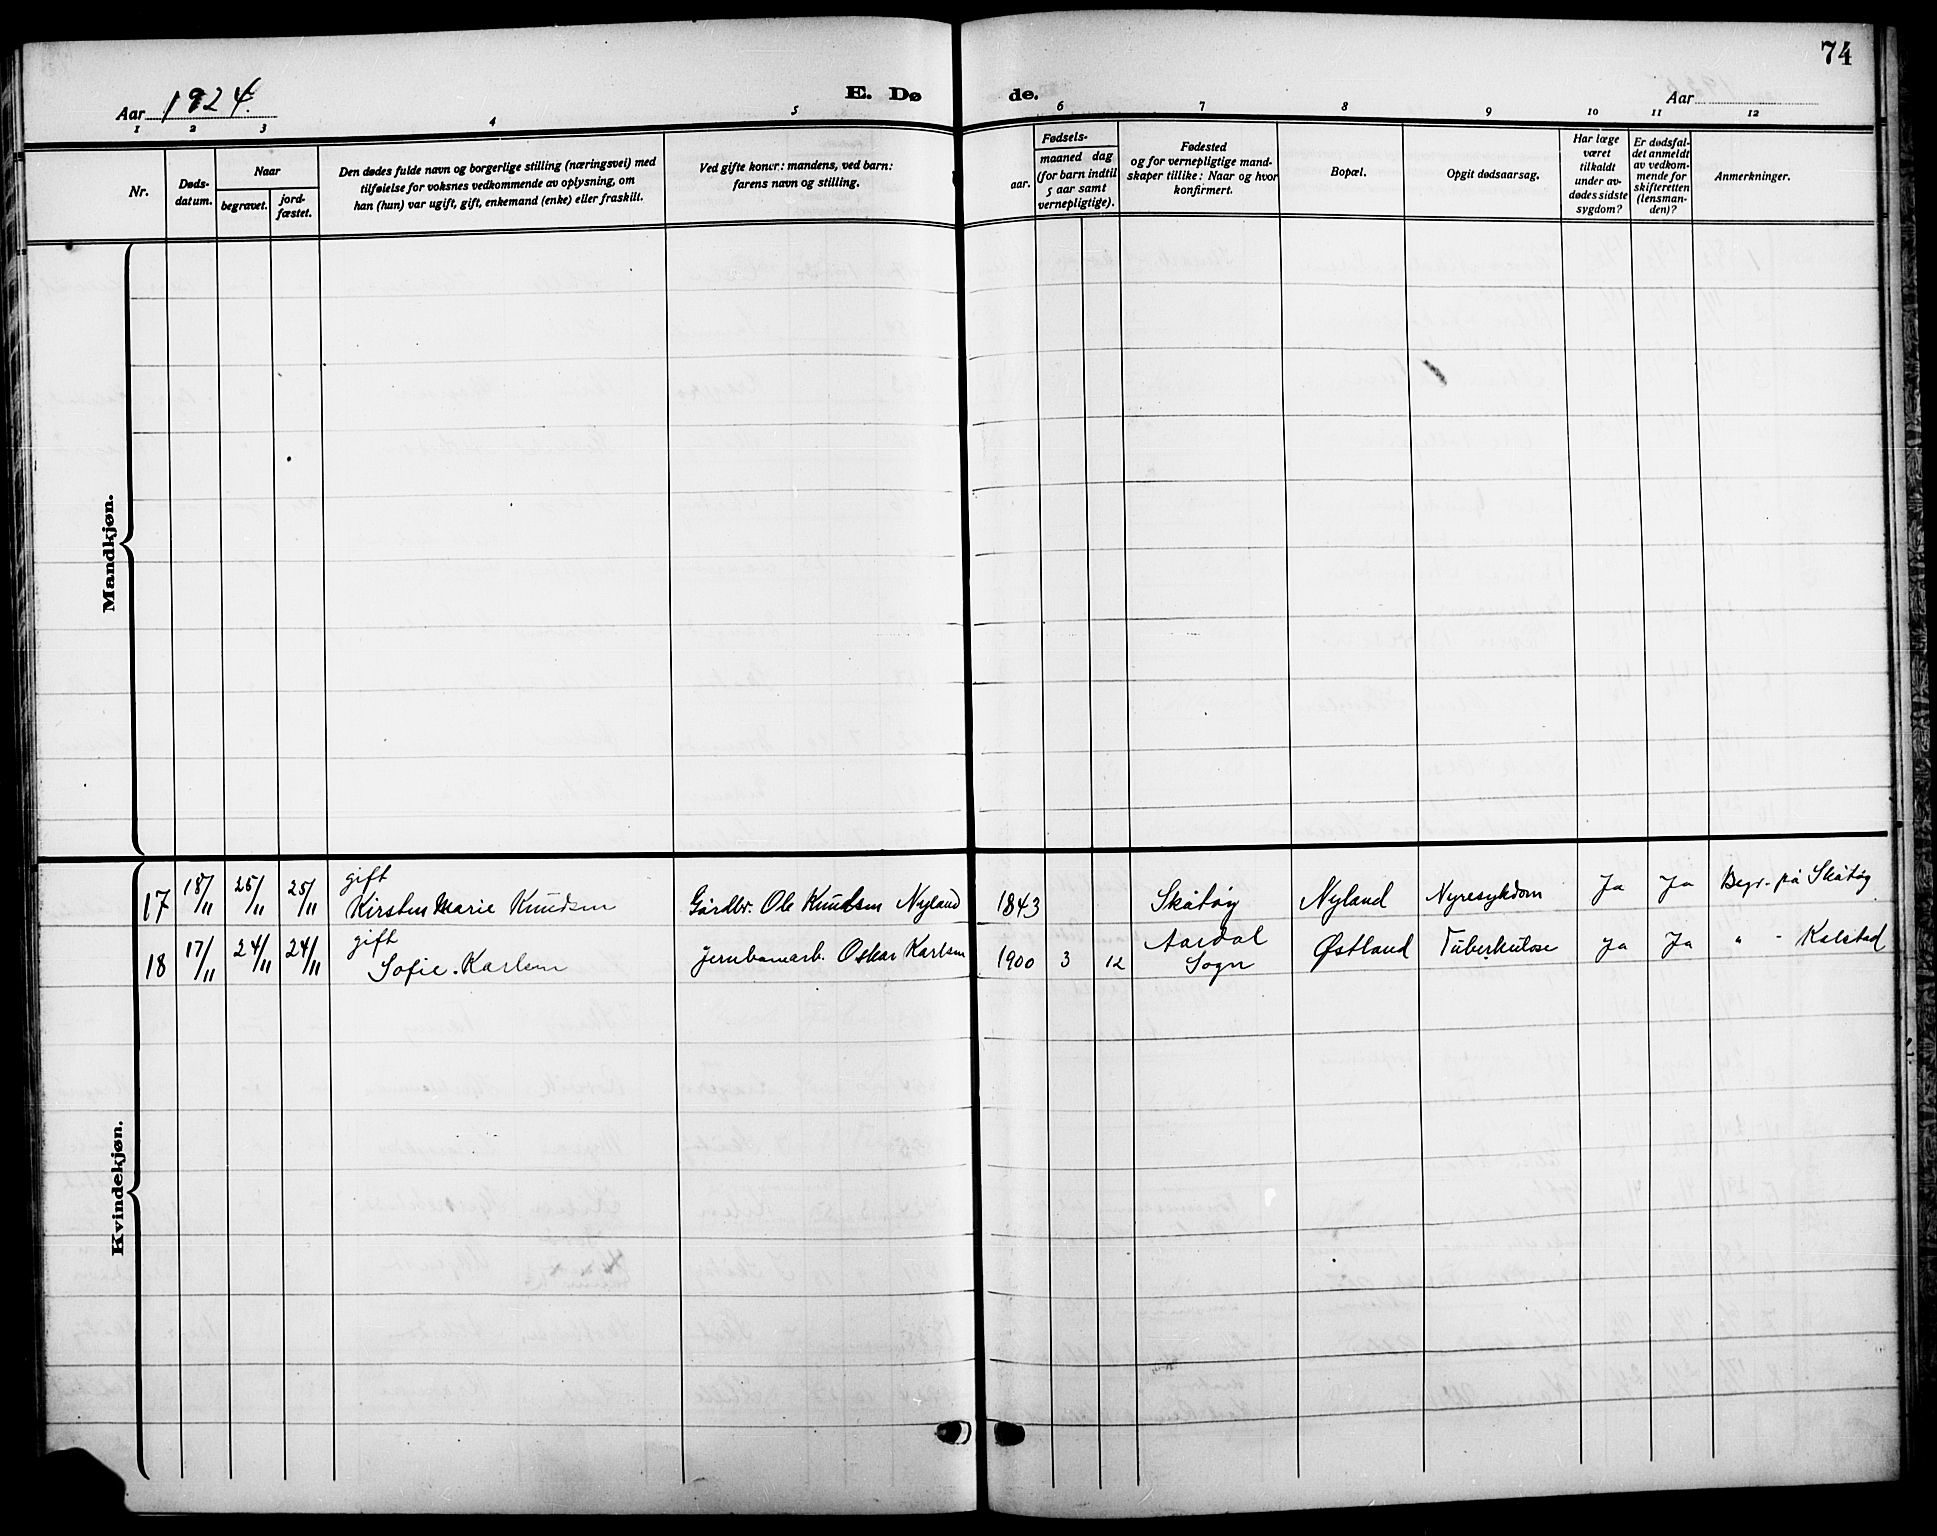 74
Aar 1924.
E. Dø de.
Aar
1 2 3 4 5 6 7 8 9 10 11 12
Nr.
Døds-
datum.
Naar
begravet.
jord-
fæstet.
Den dødes fulde navn og borgerlige stilling (næringsvei) med
tilføielse for voksnes vedkommende av oplysning, om
han (hun) var ugift, gift, enkemand (enke) eller fraskilt.
Ved gifte koner: mandens, ved barn:
farens navn og stilling.
aar.
Fødsels-
maaned dag
(for barn indtil
5 aar samt
vernepligtige).
Fødested
og for vernepligtige mand-
skaper tillike: Naar og hvor
konfirmert.
Bopæl.
Opgit dødsaarsag.
Har læge
været
tilkaldt
under av-
dødes sidste
sygdom?
Er dødsfal-
det anmeldt
av vedkom-
mende for
skifteretten
(lensman-
den)?
Anmerkninger.
Mandkjøn.
Kvindekjøn.
gift
17 18/11 25/11 25/11 Kirsten Marie Knudsen Gårdbr. Ole Knudsen Nyland 1843 Skåtøy Nyland Nyresykdom Ja Ja Begr. på Skåtøy
gift Aardal
18 17/11 24/11 24/11 Sofie Karlsen Jernbanearb. Oskar Karlsen 1900 3 12 Sogn Østland Tuberkulose Ja Ja " - Kalstad